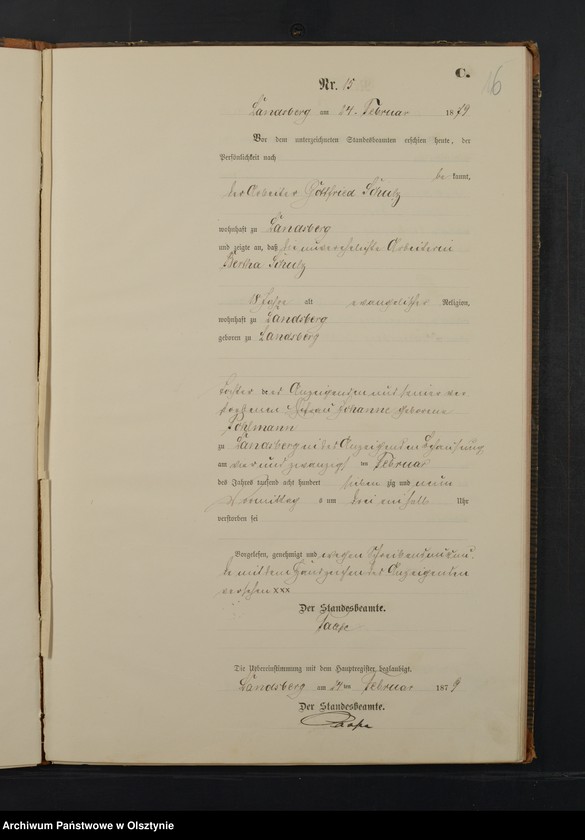 C.
16
Nr. 15
Landsberg am 24. Februar 1879
Vor dem unterzeichneten Standesbeamten erschien heute, der
Persönlichkeit nach
be kannt,
der Arbeiter Gottfried Schulz
wohnhaft zu Landsberg
und zeigte an, daß die unverehelichte Arbeiterin
Bertha Schulz
Jahre alt evangelischer Religion,
wohnhaft zu Landsberg
geboren zu Landsberg
Tochter des Anzeigenden und seiner ver
storbenen Ehefrau Johanne geborene
Pohlmann
zu Landsberg in des Anzeigenden Behausung
am vier und zwanzigsten Februar
des Jahres tausend acht hundert sieben zig und neun
Vormittags um drei ein halb Uhr
verstorben sei
Vorgelesen, genehmigt und wegen Schreibensunkun
de mit dem Handzeichen des Anzeigenden
versehen xxx
Der Standesbeamte.
Die Uebereinstimmung mit dem Hauptregister beglaubigt.
Landsberg am 24 ten Februar 1879
Der Standesbeamte.
Archiwum Państwowe w Olsztynie